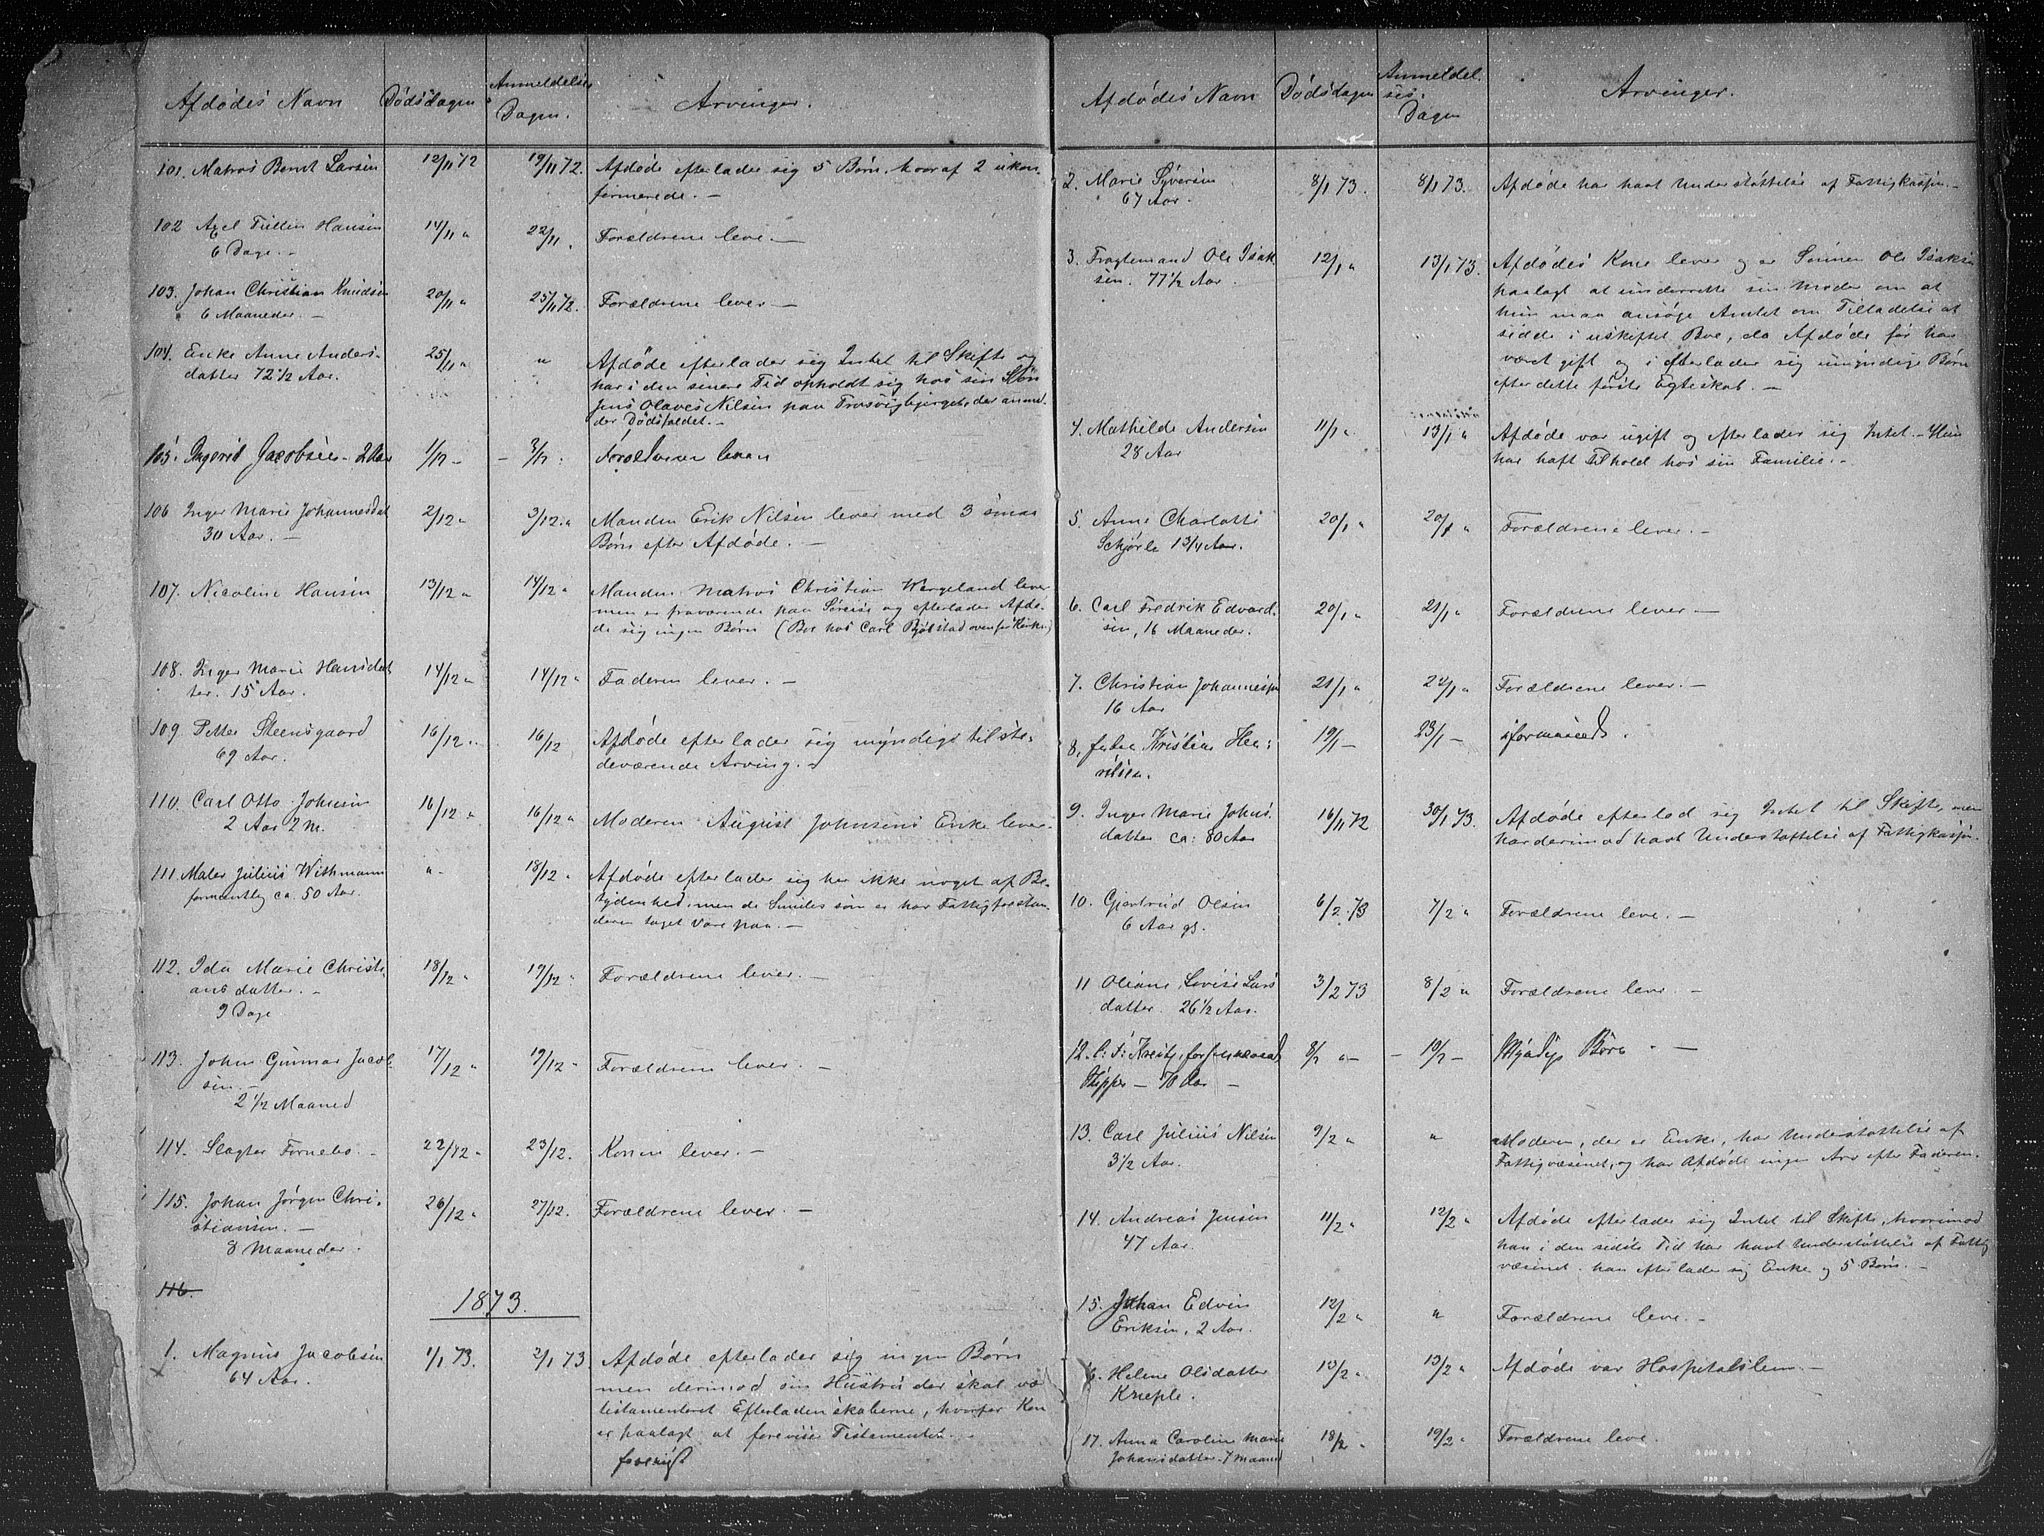 Afdødes Navn Dødsdagen Anmeldelses Dagen. Arvinger.
101. Matros Bernt Larsen 12/11 72 19/11 72. Afdøde efterlader sig 5 Børn, hvoraf 2 ukon-
firmerede. —
102 Axel Hansen 14/11 " 22/11 " Forældrene leve. —
6 Dage. —
103. Johan Christian Knudsen 20/11 " 25/11 72. Forældrene lever —
6 Maaneder. —
104. Enke Anne Anders- 25/11 " " Afdøde efterlader sig Intet til Skifte og
datter 72 1/2 Aar. har i den senere Tid opholdt sig hos sin Søn
Jens Olaves Nilsen paa Trosvigbjerget, der anmel-
der Dødsfaldet. —
105. Ingerid Jacobsen - 2 Aar 1/12 — 3/12. Forældrene lever
106 Inger Marie Johannesdat 2/12 " 3/12. " Manden Erik Nilsen lever med 3 smaa
30 Aar. — Børn efter Afdøde. —
107. Nicoline Hansen 13/12 " 14/12 " Manden Matros Christian Wergeland lever
men er fraværende paa Søreise og efterlader Afdø-
de sig ingen Børn (Bor hos Carl Bjølstad ovenfor Kirken)
108. Inger Marie Hansdat 14/12 " 14/12 " Faderen lever. —
ter. 15 Aar.
109. Petter Steensgaard 16/12 " 16/12 Afdøde efterlader sig myndige tilste-
69 Aar. deværende Arving. —
110. Carl Otto Johnsen 16/12 " 16/12 " Moderen August Johnsens Enke lever.
2 Aar 2 M.
111. Maler Julius Withmann " 18/12 " Afdøde efterlader sig her ikke noget af Be-
formentlig ca. 50 Aar. tydenhed, men de Smules som er har Fattigforstan-
deren taget vare paa. —
112. Ida Marie Christi- 18/12 " 19/12 " Forældrene lever. —
ansdatter. —
9 Dage
113. John Gunnar Jacob- 17/12 " 19/12 " Forældrene lever. —
sen. —
2 1/2 Maaned
114. Slagter Fornebo. — 22/12 " 23/12. Konen lever. —
115. Johan Jørgen Chri- 26/12 " 27/12. Forældrene lever. —
stiansen. —
8 Maaneder.
116.
1873.
1. Magnus Jacobsen 1/1 73. 2/1 73. Afdøde efterlader sig ingen Børn
64 Aar. men derimod sin Hustru der skal være
testamenteret Efterladenskaberne, hvorfor Kon
er paalagt at forevise Testamentet. —
forevist
Afdødes Navn Dødsdagen Anmeldel-
ses- Dagen Arvinger.
2. Marie Syversen 8/1 73. 8/1 73. Afdøde har havt Understøttelse af Fattigkassen. —
67 Aar.
3. Fragtemand Ole Isak- 12/1 " 13/1 73. Afdødes Kone lever og er Sønnen Ole Isaksen
sen. 77 1/2 Aar. paalagt at underrette sin Moder om at
hun maa ansøge Amtet om Tilladelse at
sidde i uskiftet Boe, da Afdøde før har
været gift og i efterlader sig umyndige Børn
efter dette første Egteskab. —
4. Mathilde Andersen 11/1 " 13/1 " Afdøde var ugift og efterlader sig Intet. — Hun
28 Aar har haft Tilhold hos sin Familie. —
5. Anne Charlotte 20/1 " 20/1 " Forældrene lever. —
1 3/4 Aar.
6. Carl Fredrik Edvard- 20/1 " 21/1 " Forældrene lever. —
sen, 16 Maaneder.
7. Christian Johannessen 21/1 " 22/1 " Forældrene lever. —
16 Aar
8. Kristine 19/1 — 23/1 —
9. Inger Marie Johns- 16/11 72 30/1 73. Afdøde efterlod sig Intet til Skifte, men
datter ca: 80 Aar har derimod havt Understøttelse af Fattigkassen.
10. Gjertrud Olsen 6/2 73 7/2 " Forældrene leve. —
6 Aar gl.
11 Oleane Lovise Lars 3/2 73 8/2 " Forældrene lever. —
datter. 26 1/2 Aar.
12. 8/2 " — 10/2 — Myndige Børn. —
Skipper — 70 Aar —
13. Carl Julius Nilsen 9/2 " " Moderen, der er Enke, har Understøttelse af
3 1/2 Aar. Fattigvæsenet, og har Afdøde ingen Arv efter Faderen.
14. Andreas Jensen 11/2 " 12/2 " Afdøde efterlader sig Intet til Skifte, hvorimod
47 Aar. han i den sidste Tid har havt Understøttelse af Fattig
væsenet. han efterlader sig Enke og 5 Børn. —
15. Johan Edvin 12/2 " " Forældrene leve. —
Eriksen, 2 Aar.
16. Helene Olsdatter 13/2 " 13/2 " Afdøde var Hospitalslem. —
17. Anna Caroline Marie 18/2 " 19/2 " Forældrene leve.
Johansdatter. 7 Maaned